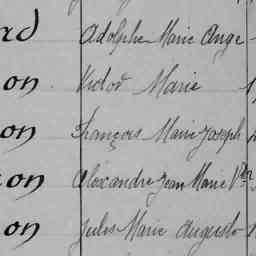 rd Adolphe Marie Ange
on Victor Marie
on François Marie Joseph
on Alexandre Jean Marie
on Jules Marie Auguste